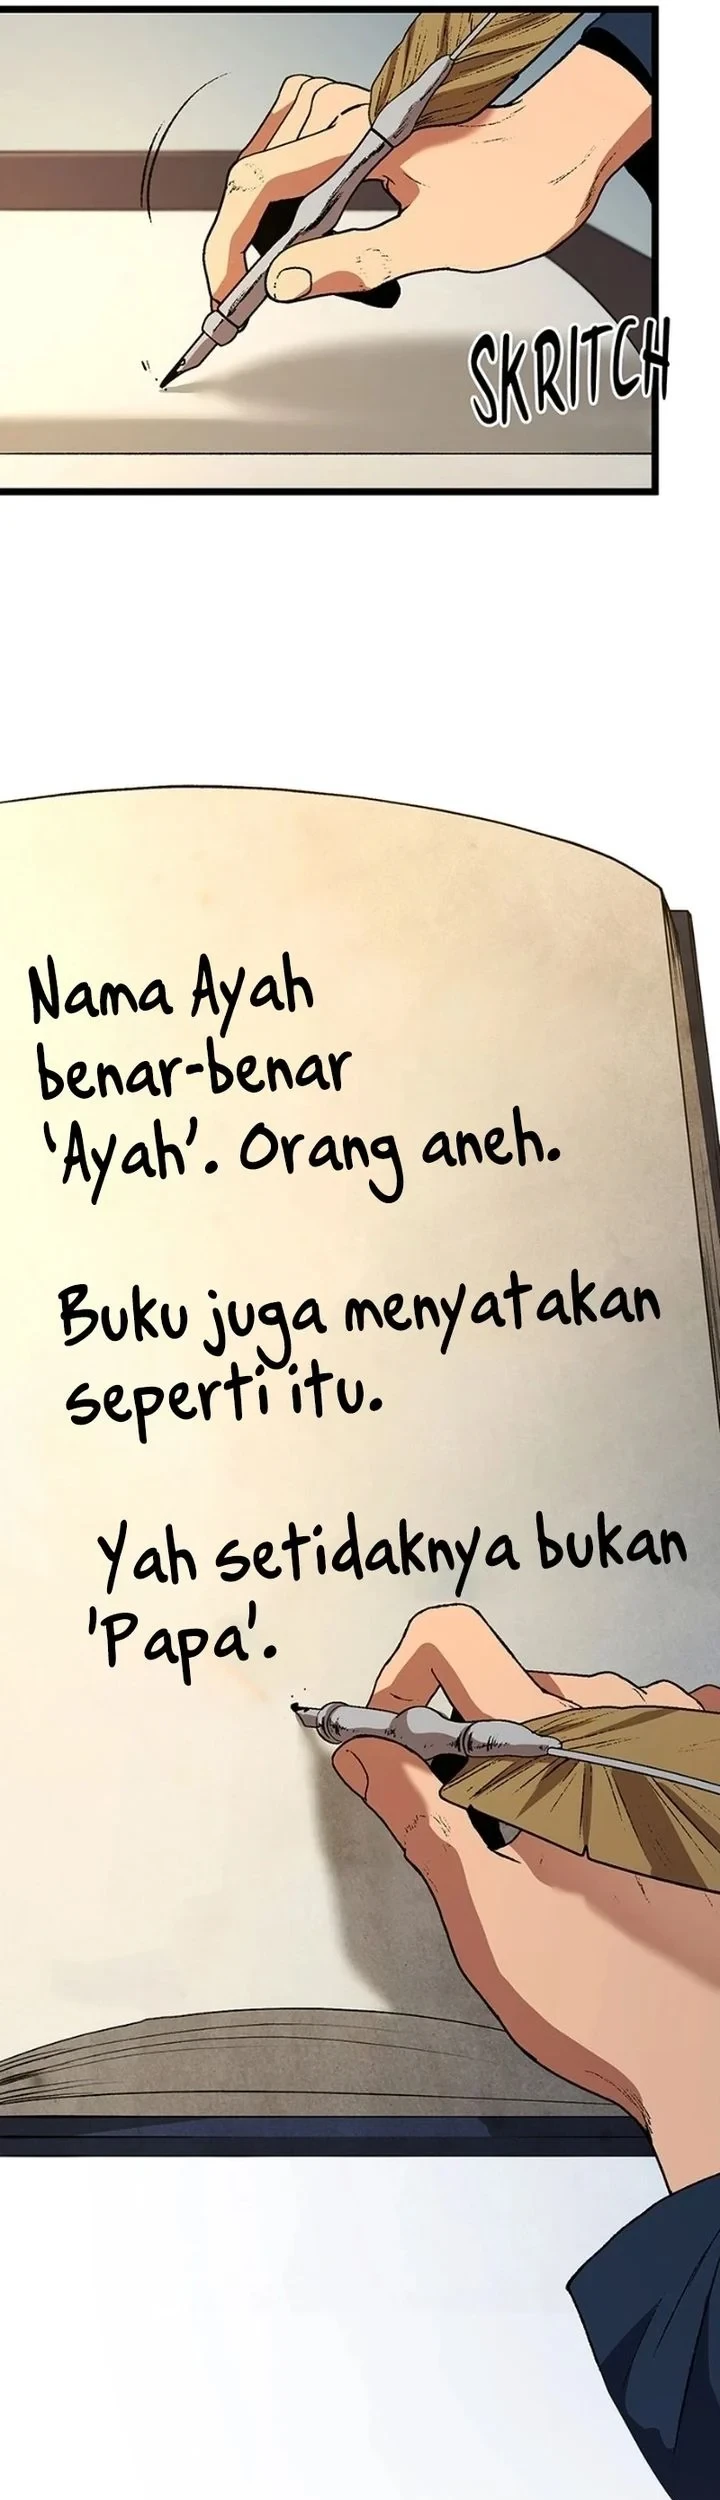 SKRITCH
Nama Ayah
benar-benar
'Ayah'. Orang aneh.
Buku juga menyatakan
seperti itu.
Yah setidaknya bukan
'Papa'.